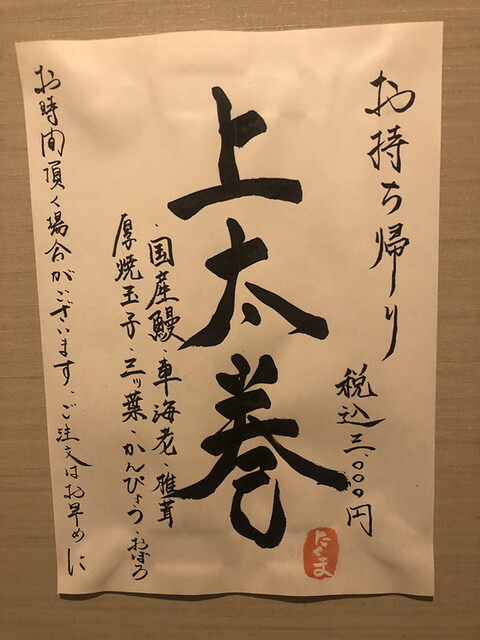 お持ち帰り
税込三、〇〇〇円
上太巻
・国産鰻・車海老・椎茸
厚焼玉子・三ッ葉・かんぴょう・おぼろ
お時間頂く場合がございます、ご注文はお早めに
たくま